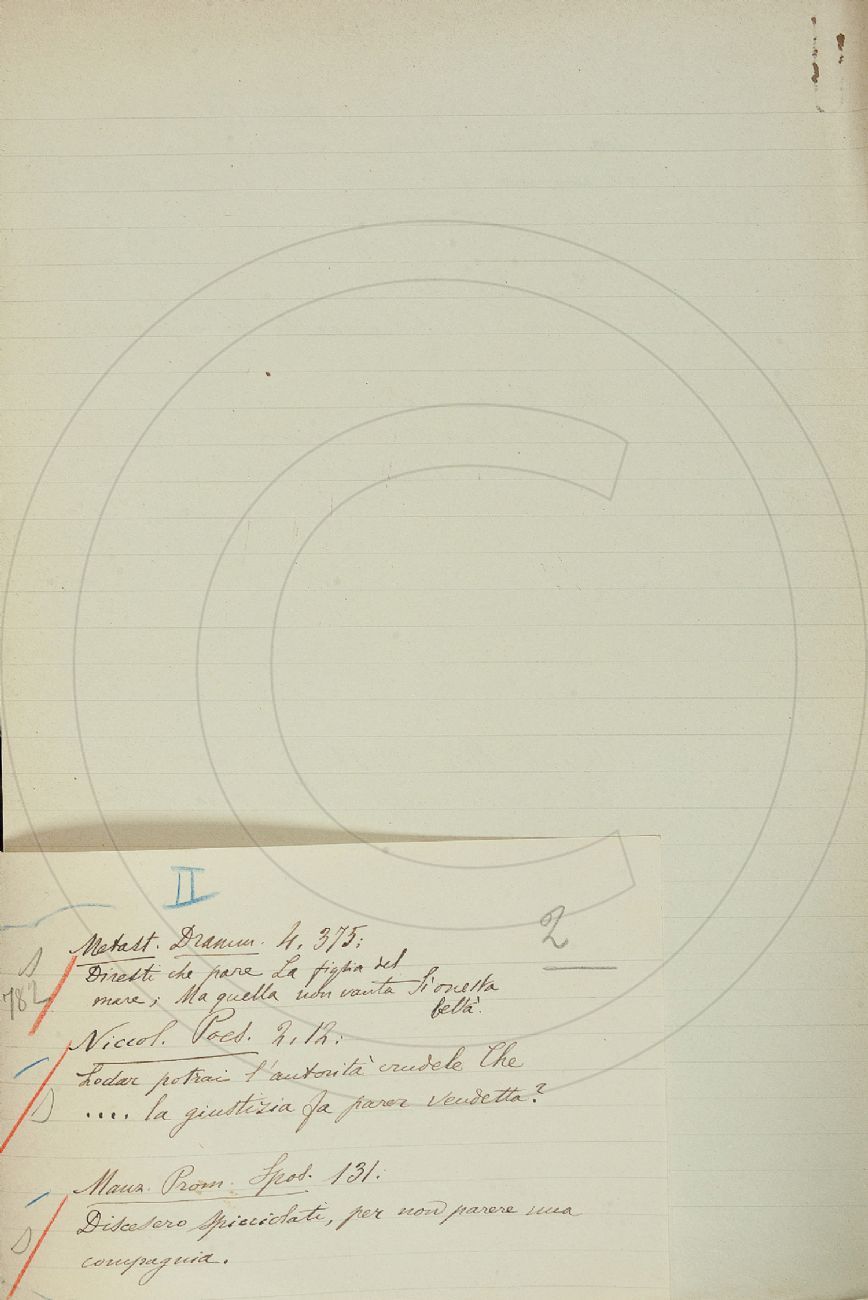 II
2
Metast. Dramm. 4. 375:
Diresti che pare La figlia del
mare; Ma quella non vanta Sì onesta
beltà.
S
782
Niccol. Poes. 2. 12:
Lodar potrai l'autorità crudele Che
.... la giustizia fa parer vendetta?
S
Manz. Prom. Spos. 131:
Discesero spicciolati, per non parere una
compagnia.
S